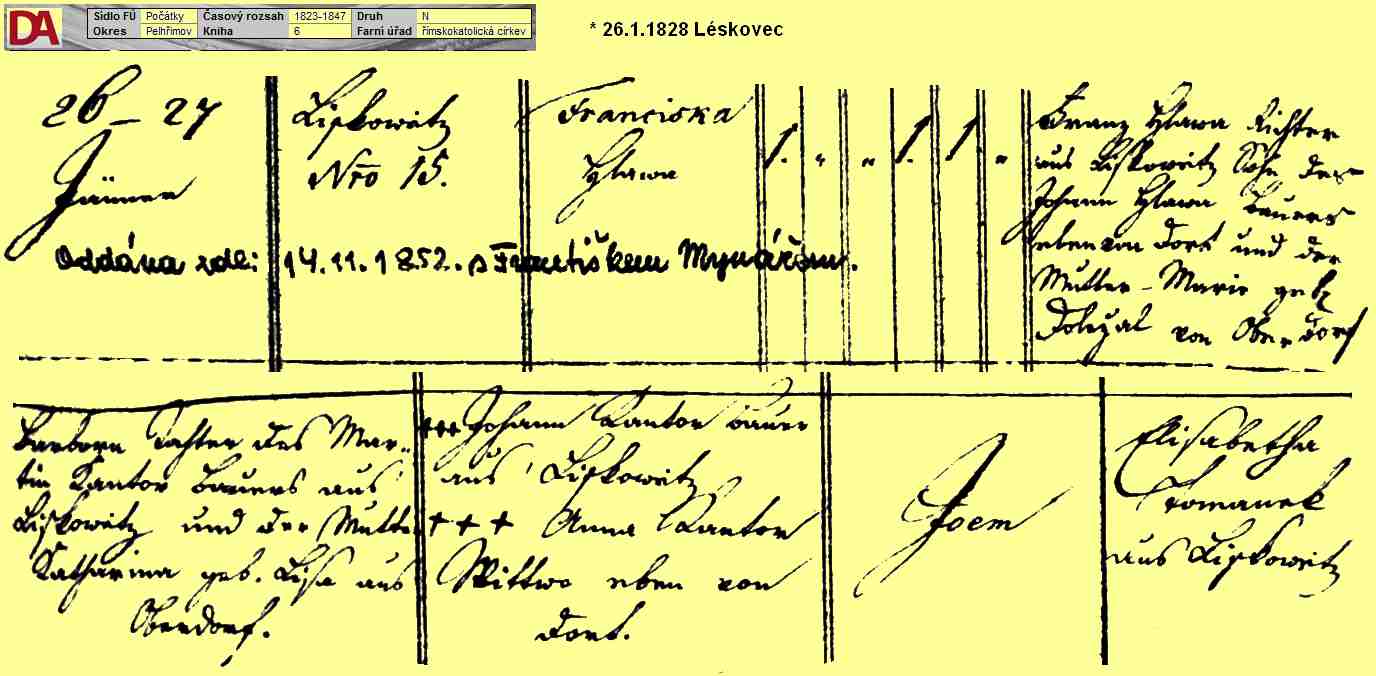 DA
Sídlo FÚ Počátky Časový rozsah 1823-1847 Druh N
Okres Pelhřimov Kniha 6 Farní úřad římskokatolická církev
* 26.1.1828 Léskovec
26 – 27
Jänner
Liskowitz
Nro 15.
Franciska
Hlawa
1. „ „ 1. 1. „
Franz Hlawa Richter
aus Liskowitz Sohn des
Johann Hlawa Bauers
eben von dort und der
Mutter Marie geb.
Doležal von Oberdorf
Oddána zde: 14.11.1852. s Františkem Mynářem.
Barbora Tochter des Mar-
tin Kantor Bauers aus
Liskowitz und der Mutter
Katharina geb. Lisa aus
Oberdorf.
+++ Johann Kantor Bauer
aus Liskowitz
+++ Anna Kantor
Wittwe eben von
dort.
Joem
Elisabetha
Tomanek
aus Liskowitz